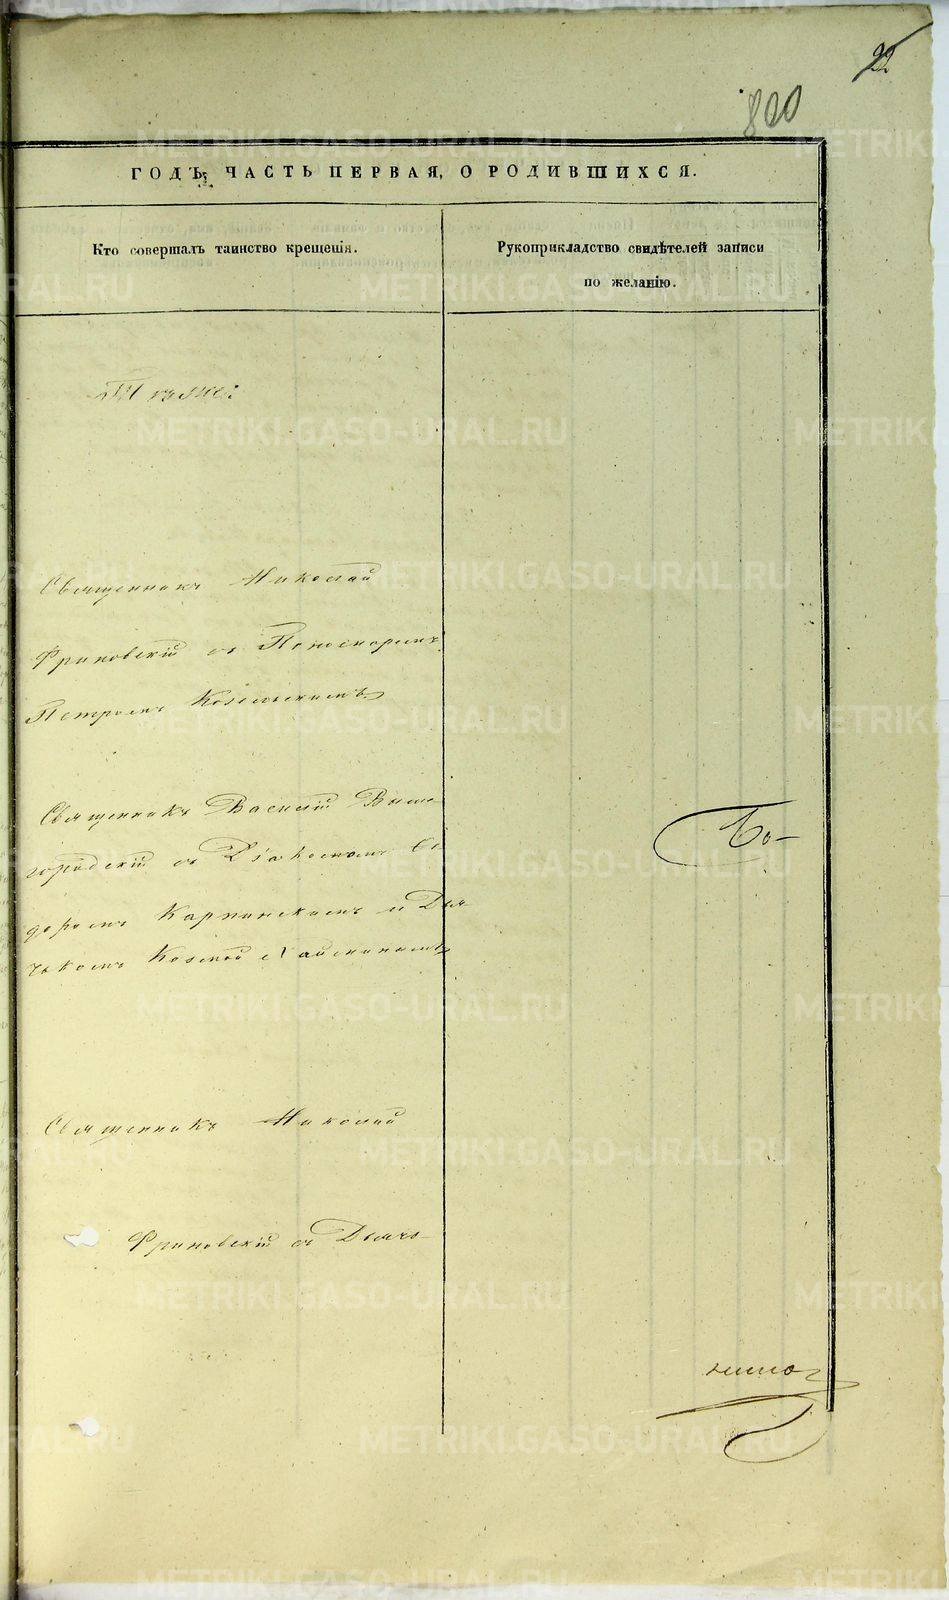 22
820
ГОДЪ, ЧАСТЬ ПЕРВАЯ, О РОДИВШИХСЯ.
Кто совершалъ таинство крещенія.
Рукоприкладство свидѣтелей записи
по желанію.
Тѣ же:
Священникъ Николай
Фриновскій съ Пономаремъ
Петромъ
Священникъ Василій Выше
городскій съ Діакономъ Си
доромъ Карпинскимъ и Дья
чкомъ Козмой
Бо-
Священникъ Николай
Фриновскій съ Дьячко
METRIKI.GASO-URAL.RU